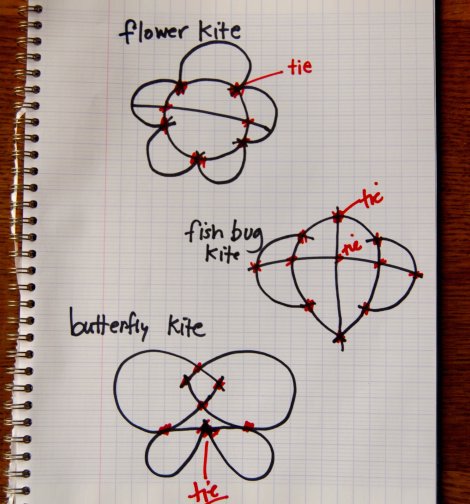 flower kite
tie
tie
fish bug
kite
tie
butterfly kite
tie